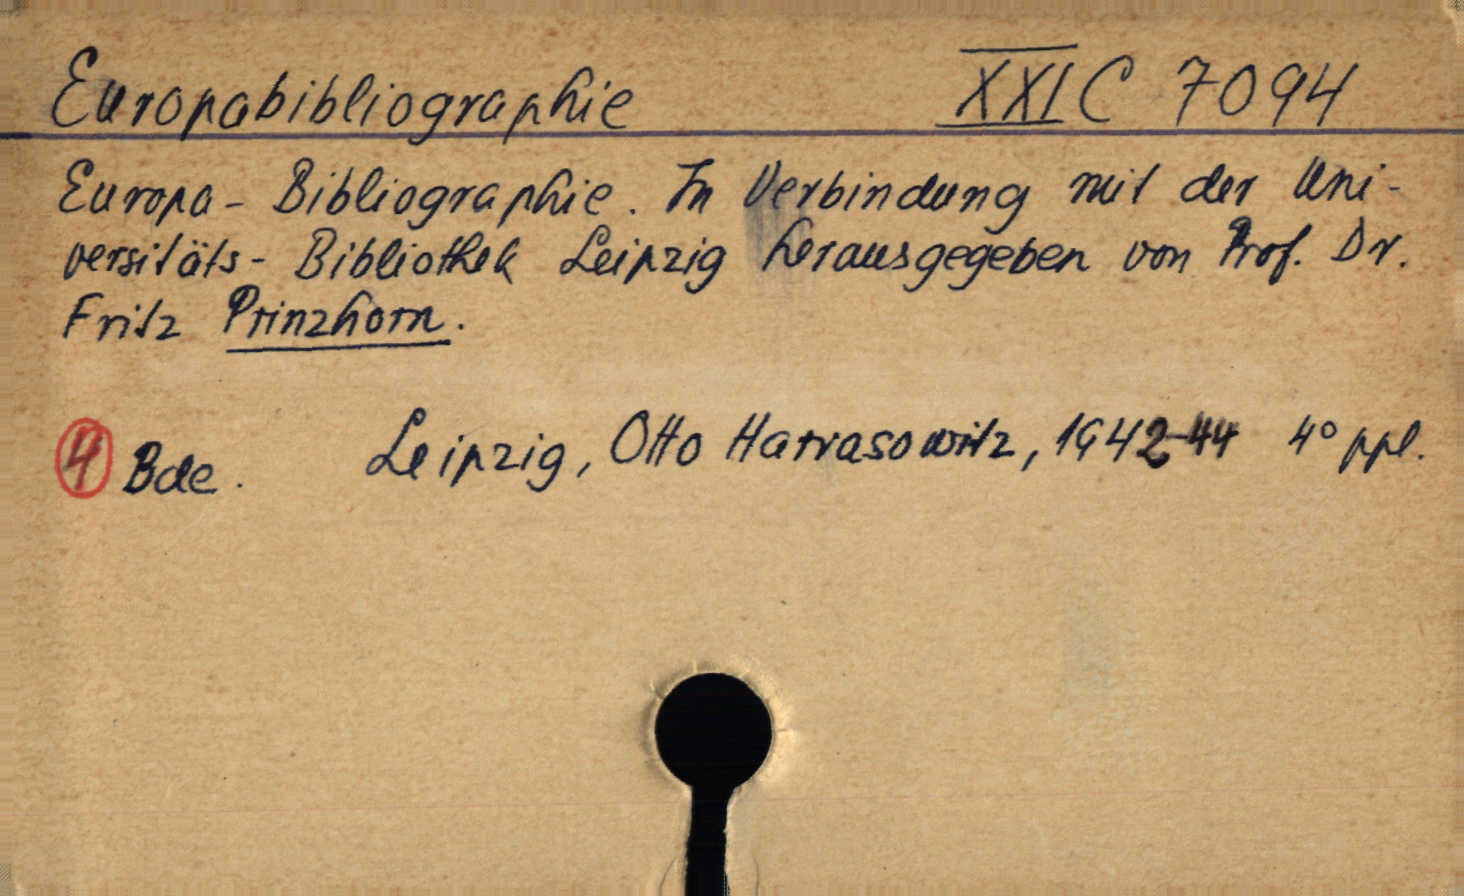 Europabibliographie XXI C 7094
Europa-Bibliographie. In Verbindung mit der Uni-
versitäts-Bibliothek Leipzig herausgegeben von Prof. Dr.
Fritz Prinzhorn.
4 Bde. Leipzig, Otto Harrasowitz, 1942-44 4° ppl.